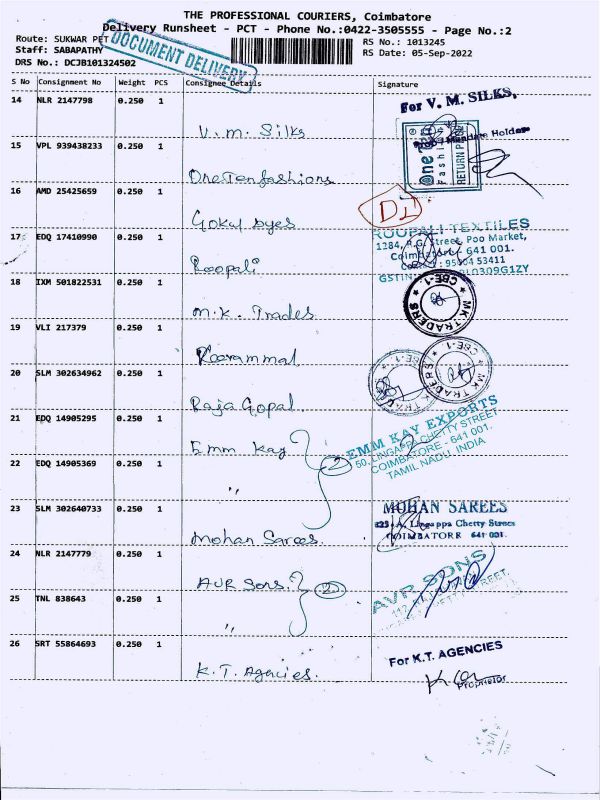 THE PROFESSIONAL COURIERS, Coimbatore
Delivery Runsheet - PCT - Phone No.:0422-3505555 - Page No.:2
Route: SUKWAR PET
RS No.: 1013245
Staff: SABAPATHY
RS Date: 05-Sep-2022
DRS No.: DCJB101324502
DOCUMENT DELIVERY
S No Consignment No Weight PCS Consignee Details Signature
14 NLR 2147798 0.250 1
V. M. Silks
For V. M. SILKS,
15 VPL 939438233 0.250 1
One Ten fashions
Holder
One Ten
Fashions
RETURN
16 AMD 25425659 0.250 1
Gokul Dyes
17 EDQ 17410990 0.250 1
Roopali
ROOPALI TEXTILES
1284, R.G. Street, Poo Market,
Coimbatore - 641 001.
18 IXM 501822531 0.250 1
M.K. Trades
MK TRADERS
CBE-1
19 VLI 217379 0.250 1
MK TRADERS
CBE-1
20 SLM 302634962 0.250 1
Raja Gopal
21 EDQ 14905295 0.250 1
Emm Kay
2
EMM KAY EXPORTS
50, LINGAPPA CHETTY STREET
COIMBATORE - 641 001.
TAMIL NADU, INDIA
22 EDQ 14905369 0.250 1
"
23 SLM 302640733 0.250 1
Mohan Sarees.
MOHAN SAREES
Lingappa Chetty Street
COIMBATORE 641 001.
24 NLR 2147779 0.250 1
AVR Sons.
2
AVR SONS
25 TNL 838643 0.250 1
"
26 SRT 55864693 0.250 1
K.T. Agencies.
For K.T. AGENCIES
Proprietor